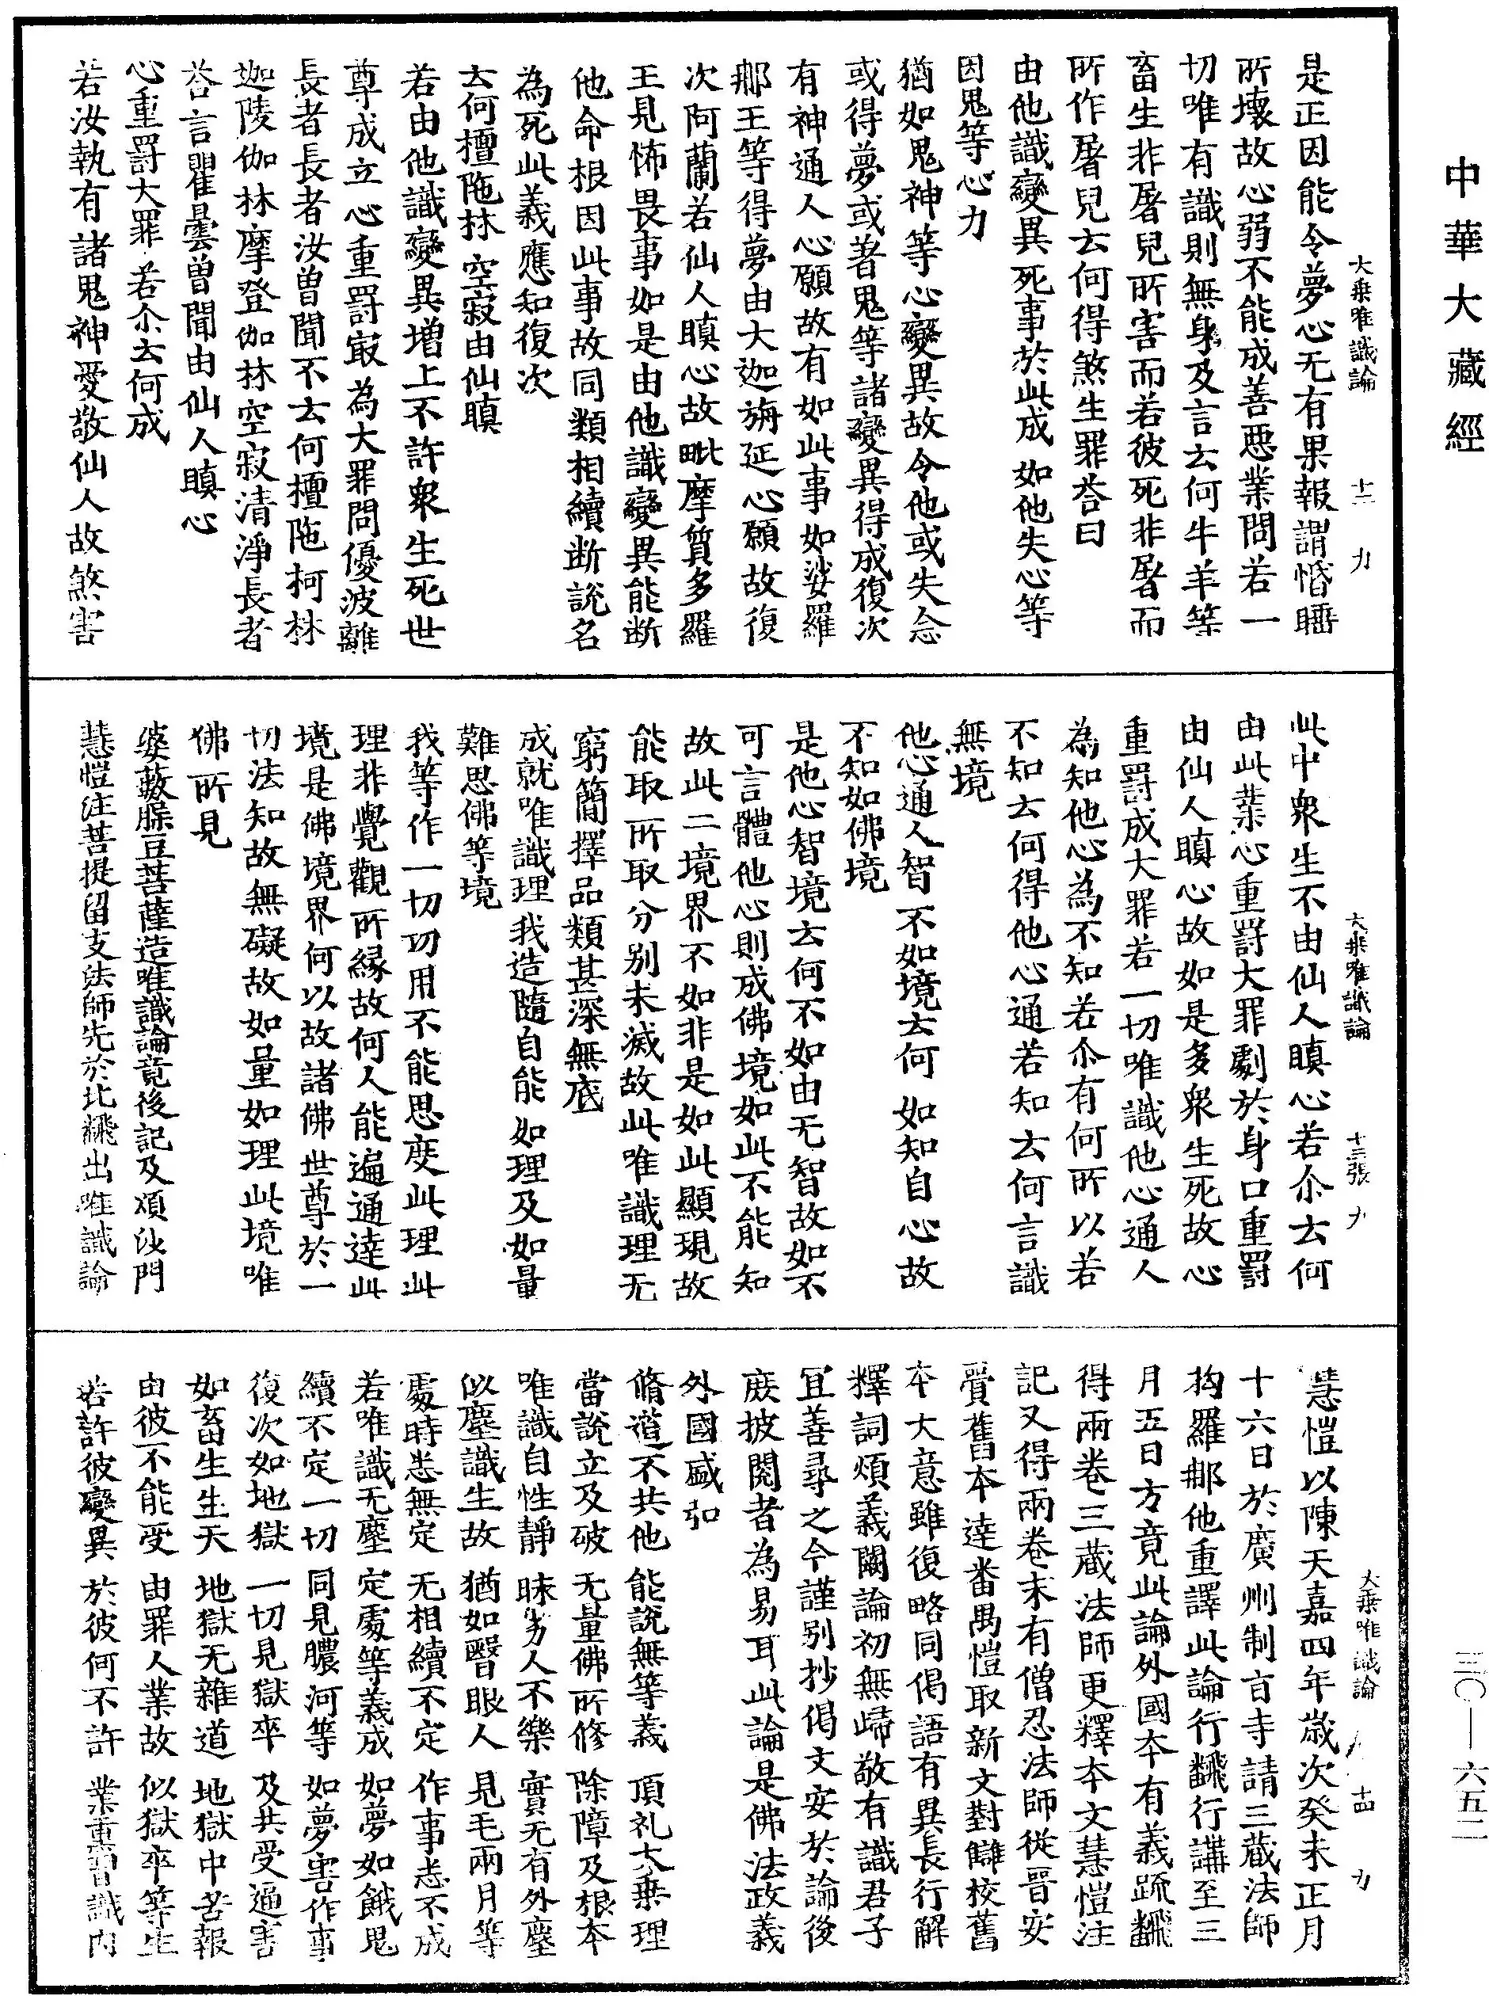 中華大藏經
大乗唯識論　十二　力
是正因能令夢心无有果報謂惛睡
所壞故心弱不能成善惡業問若一
切唯有識則無身及言云何牛羊等
畜生非屠兒所害而若彼死非屠而
所作屠兒云何得煞生罪荅曰
由他識變異死事於此成　如他失心等
因鬼等心力
猶如鬼神等心變異故令他或失念
或得夢或著鬼等諸變異得成復次
有神通人心願故有如此事如娑羅
那王等得夢由大迦旃延心願故復
次阿蘭若仙人瞋心故毗摩質多羅
王見怖畏事如是由他識變異能断
他命根因此事故同類相續断說名
為死此義應知復次
云何檀陁林　空寂由仙瞋
若由他識變異增上不許衆生死世
尊成立心重罸㝡為大罪問優波離
長者長者汝曽聞不云何檀陁柯林
迦陵伽林摩登伽林空寂清淨長者
荅言瞿曇曽聞由仙人瞋心
心重罸大罪　若尒云何成
若汝執有諸鬼神愛敬仙人故煞害
大乗唯識論　十三張　力
此中衆生不由仙人瞋心若尒云何
由此業心重罸大罪劇於身口重罸
由仙人瞋心故如是多衆生死故心
重罸成大罪若一切唯識他心通人
為知他心為不知若尒有何所以若
不知云何得他心通若知云何言識
無境
他心通人智　不如境云何　如知自心故
不知如佛境
是他心智境云何不如由无智故如不
可言體他心則成佛境如此不能知
故此二境界不如非是如此顯現故
能取所取分别未滅故此唯識理无
窮簡擇品類甚深無底
成就唯識理　我造隨自能　如理及如量
難思佛等境
我等作一切功用不能思度此理此
理非覺觀所緣故何人能遍通達此
境是佛境界何以故諸佛世尊於一
切法知故無礙故如量如理此境唯
佛所見
婆藪槃豆菩薩造唯識論竟後記及頌沙門
慧愷注菩提留支法師先於北飜出唯識論
大乗唯識論　十四　力
慧愷以陳天嘉四年歲次癸未正月
十六日於廣州制旨寺請三蔵法師
拘羅那他重譯此論行飜行講至三
月五日方竟此論外國夲有義䟽飜
得兩卷三蔵法師更釋夲文慧愷注
記又得兩卷末有僧忍法師從晉安
賷舊夲達番禺愷取新文對讎校舊
夲大意雖復略同偈語有異長行解
釋詞煩義闕論初無歸敬有識君子
冝善尋之今謹别抄偈文安於論後
庻披閱者為易耳此論是佛法政義
外國盛弘
脩道不共他　能說無等義　頂礼大乗理
當說立及破　无量佛所修　除障及根夲
唯識自性靜　昧劣人不樂　實无有外塵
似塵識生故　猶如瞖眼人　見毛兩月等
處時悉無定　无相續不定　作事悉不成
若唯識无塵　定處等義成　如夢如餓鬼
續不定一切　同見膿河等　如夢害作事
復次如地獄　一切見獄卒　及共受逼害
如畜生生天　地獄无雜道　地獄中苦報
由彼不能受　由罪人業故　似獄卒等生
若許彼變異　於彼何不許　業重習識内
三〇—六五二